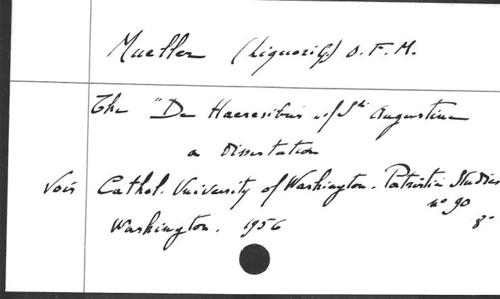 Mueller (Liguori G.) O.F.M.
The "De Haeresibus" of St Augustine
a dissertation
Vois Cathol. University of Washington. Patristic Studies
n° 90
Washington. 1956 8°